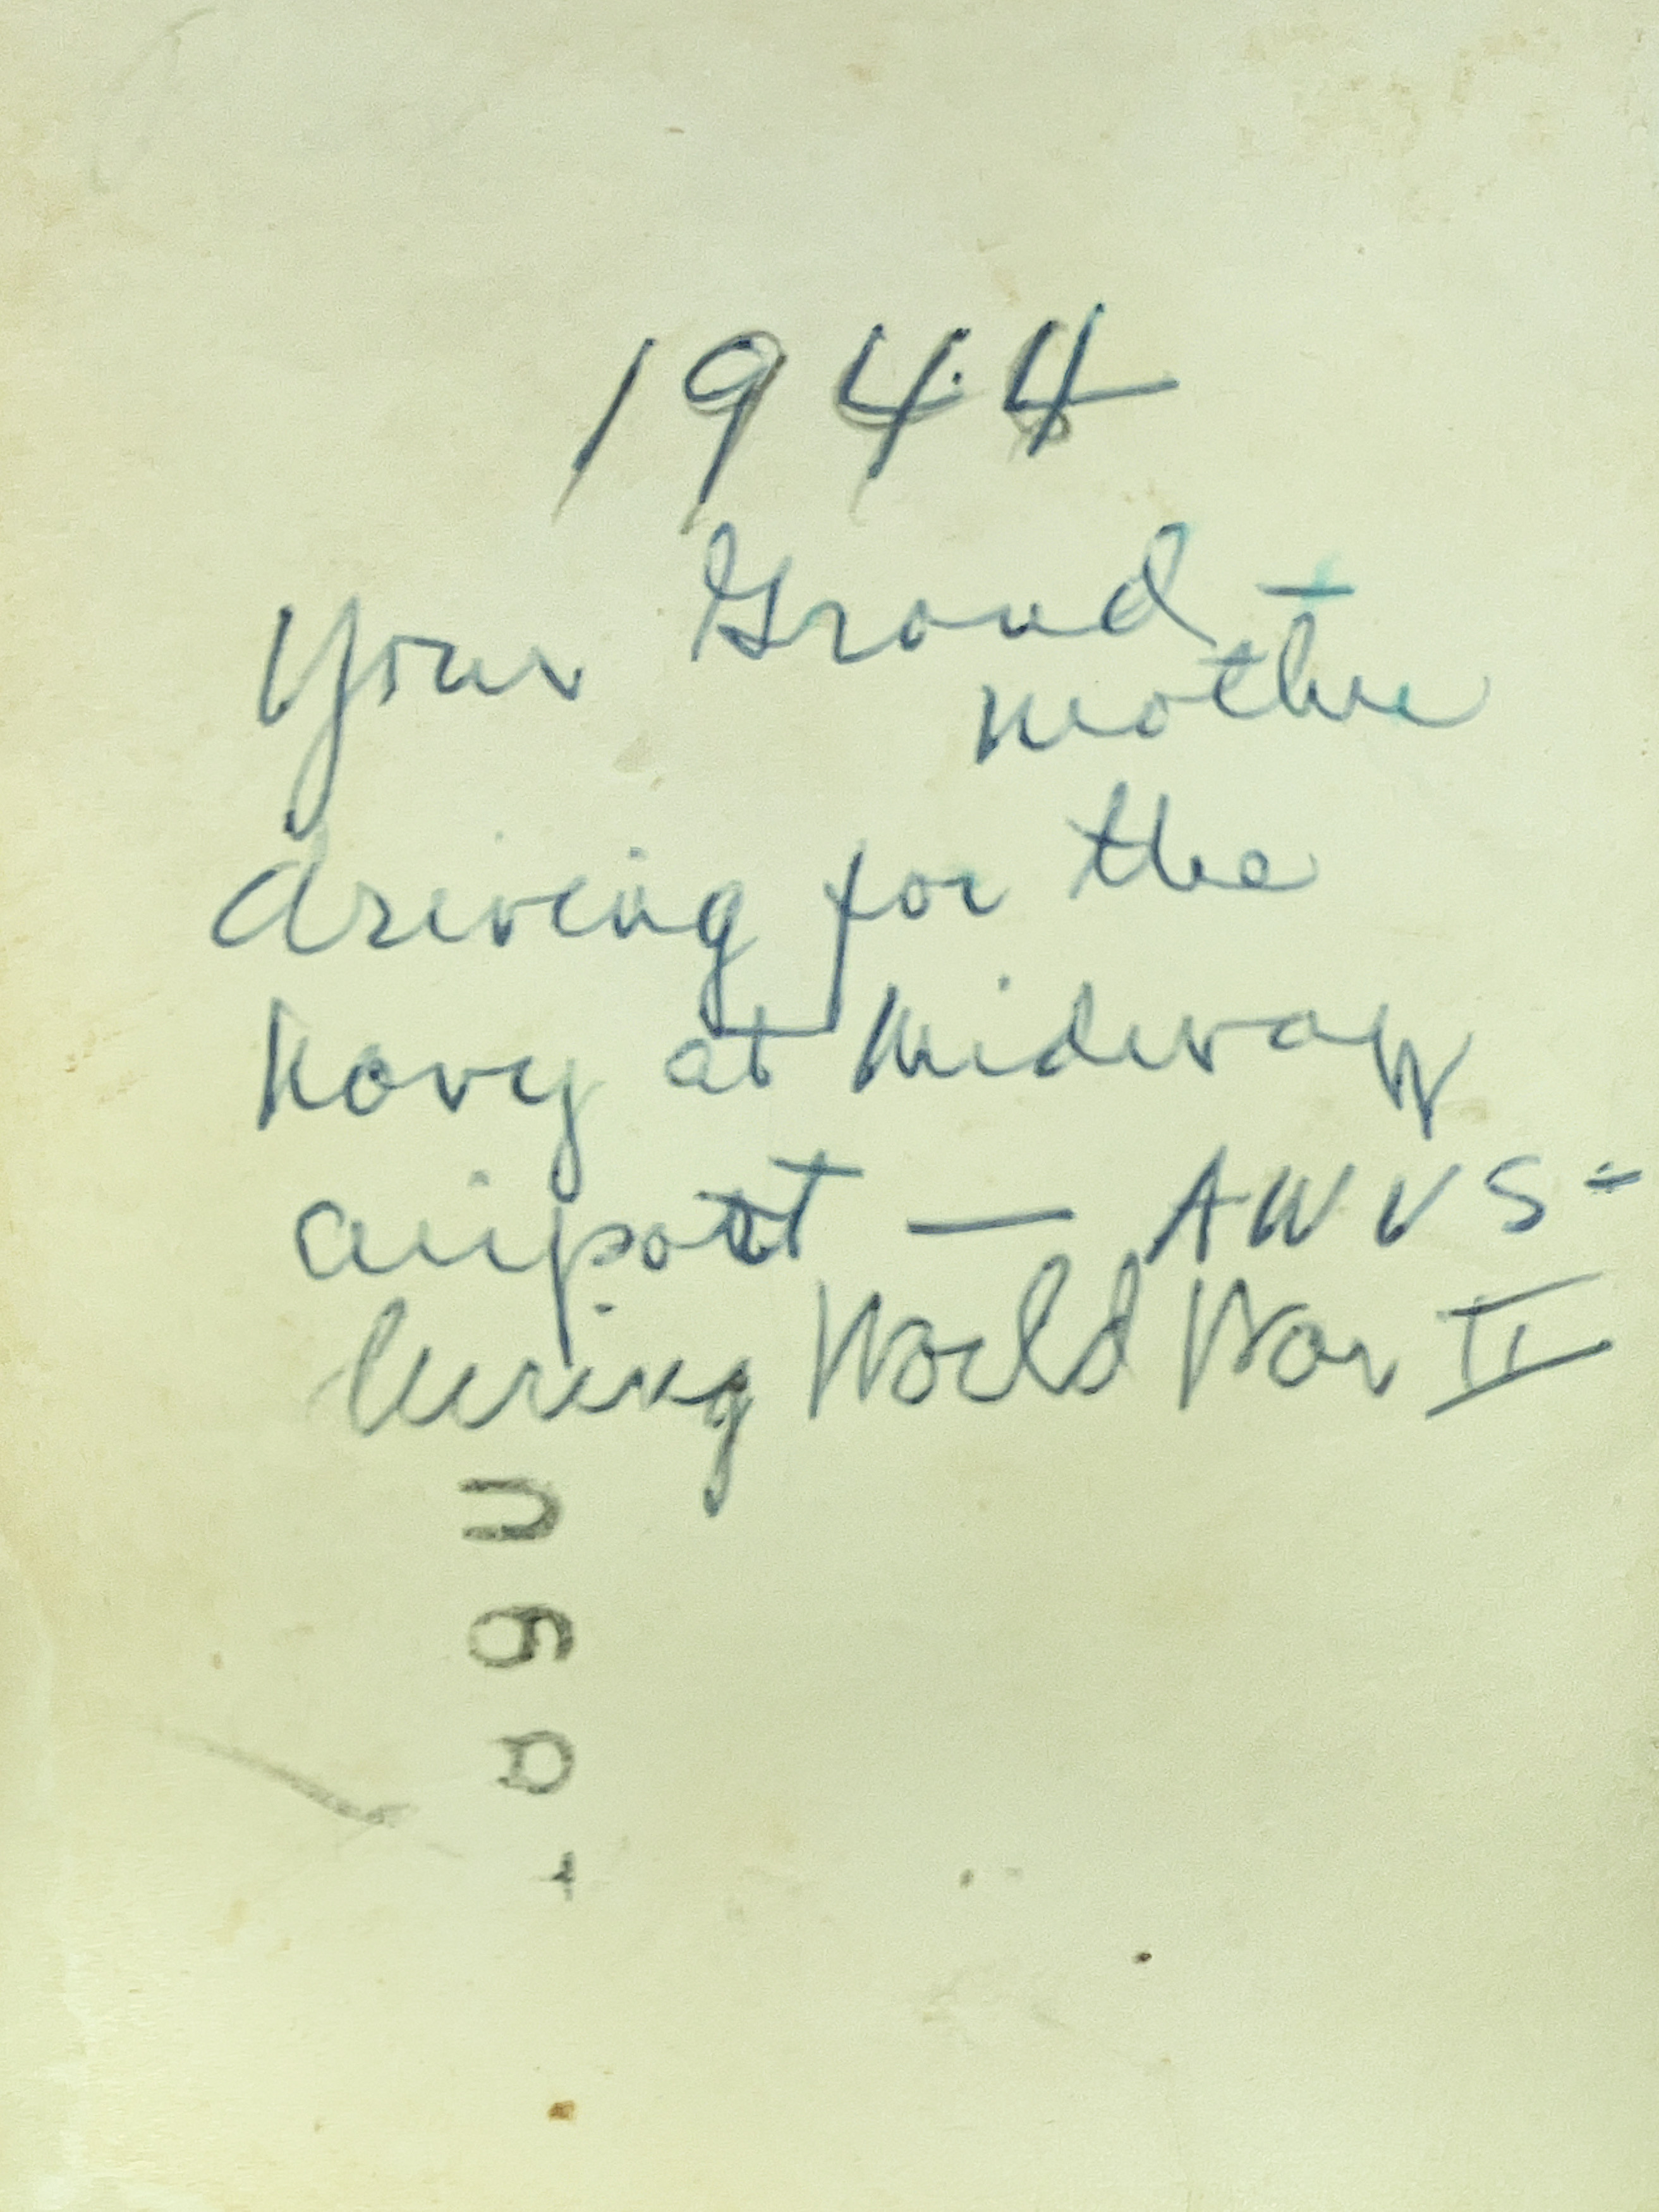 1944
Your Grand-
mother
driving for the
Navy at Midway
airport — AWVS-
during World War II